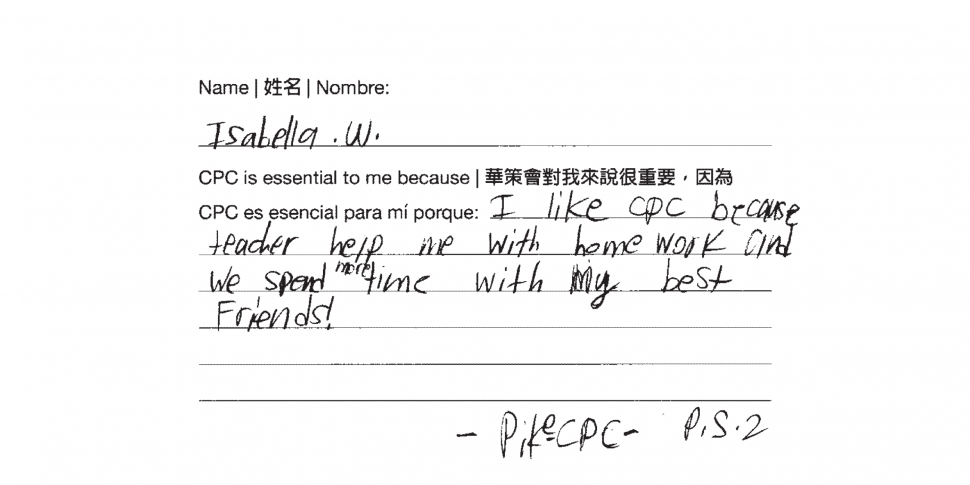 Name | 姓名 | Nombre:
Isabella . W.
CPC is essential to me because | 華策會對我來說很重要，因為
CPC es esencial para mí porque: I like cpc because
teacher help me with home work and
We spend more time with My best
Friends!
- PikeCPC - P.S.2